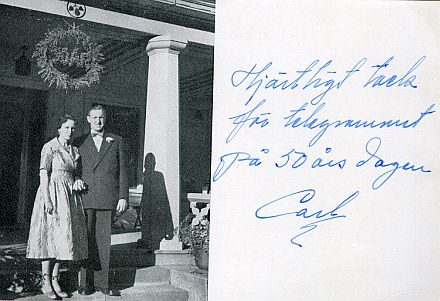 Hjärtligt tack
för telegrammet
på 50 års dagen
Carl